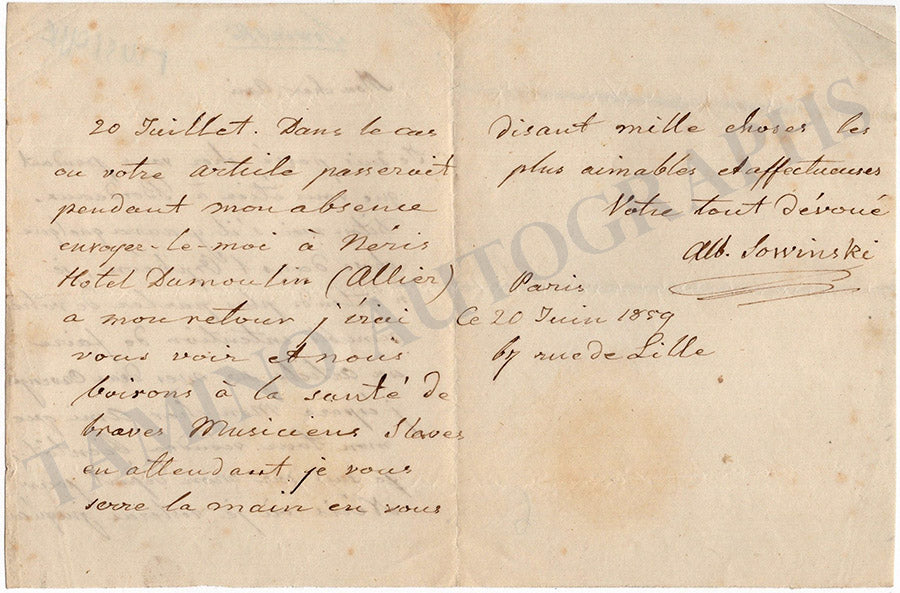 20 Juillet. Dans le cas
ou votre article passerait
pendant mon absence
envoyer-le-moi à Néris
Hotel Dumoulin (Allier)
a mon retour j'irai
vous voir et nous
boirons à la santé de
braves Musiciens Slaves
en attendant je vous
serre la main en vous
disant mille choses les
plus aimables et affectueuses
Votre tout dévoué
Alb. Sowinski
Paris
Ce 20 Juin 1859
67 rue de Lille
TAMINO AUTOGRAPHS